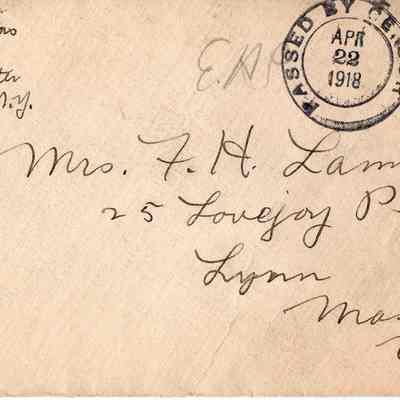 N.Y.
E.A.
PASSED BY CENSOR
APR
22
1918
Mrs. F. H. Lam
25 Lovejoy P
Lynn
Mas